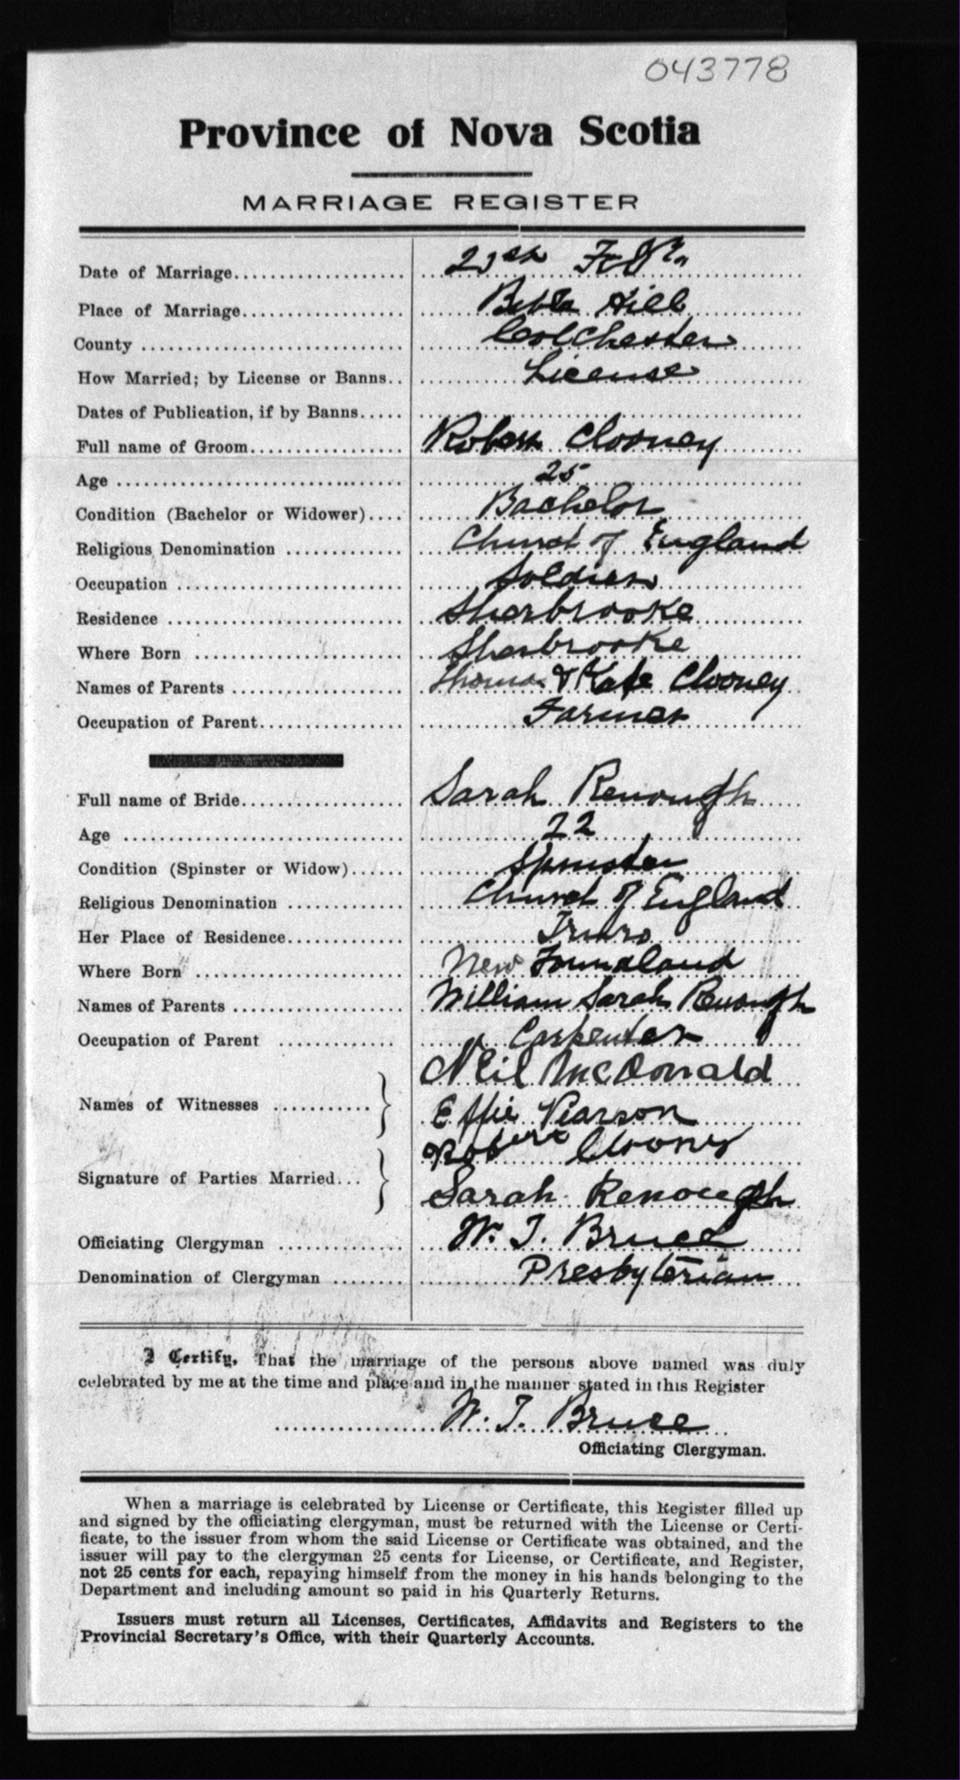 043778
Province of Nova Scotia
MARRIAGE REGISTER
Date of Marriage 21st
Place of Marriage Bible Hill
County Colchester
How Married; by License or Banns License
Dates of Publication, if by Banns
Full name of Groom Robert Clooney
Age 25
Condition (Bachelor or Widower) Bachelor
Religious Denomination Church of England
Occupation Soldier
Residence Sherbrooke
Where Born Sherbrooke
Names of Parents Thomas & Kate Clooney
Occupation of Parent Farmer
Full name of Bride Sarah Renough
Age 22
Condition (Spinster or Widow) Spinster
Religious Denomination Church of England
Her Place of Residence Truro
Where Born New Foundland
Names of Parents William Sarah Renough
Occupation of Parent Carpenter
Neil McDonald
Names of Witnesses
Effie Pearson
Robert Clooney
Signature of Parties Married
Sarah Renough
Officiating Clergyman W. T. Bruce
Denomination of Clergyman Presbyterian
I Certify, That the marriage of the persons above named was duly
celebrated by me at the time and place and in the manner stated in this Register
W. T. Bruce
Officiating Clergyman.
When a marriage is celebrated by License or Certificate, this Register filled up
and signed by the officiating clergyman, must be returned with the License or Certi-
ficate, to the issuer from whom the said License or Certificate was obtained, and the
issuer will pay to the clergyman 25 cents for License, or Certificate, and Register,
not 25 cents for each, repaying himself from the money in his hands belonging to the
Department and including amount so paid in his Quarterly Returns.
Issuers must return all Licenses, Certificates, Affidavits and Registers to the
Provincial Secretary's Office, with their Quarterly Accounts.